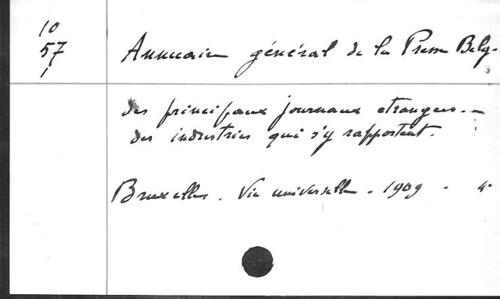 10
57
1
Annuaire général de la Presse Belg-
des principaux journaux etrangers --
des industries qui s'y rapportent.
Bruxelles. Vie universelle - 1909 - 4°